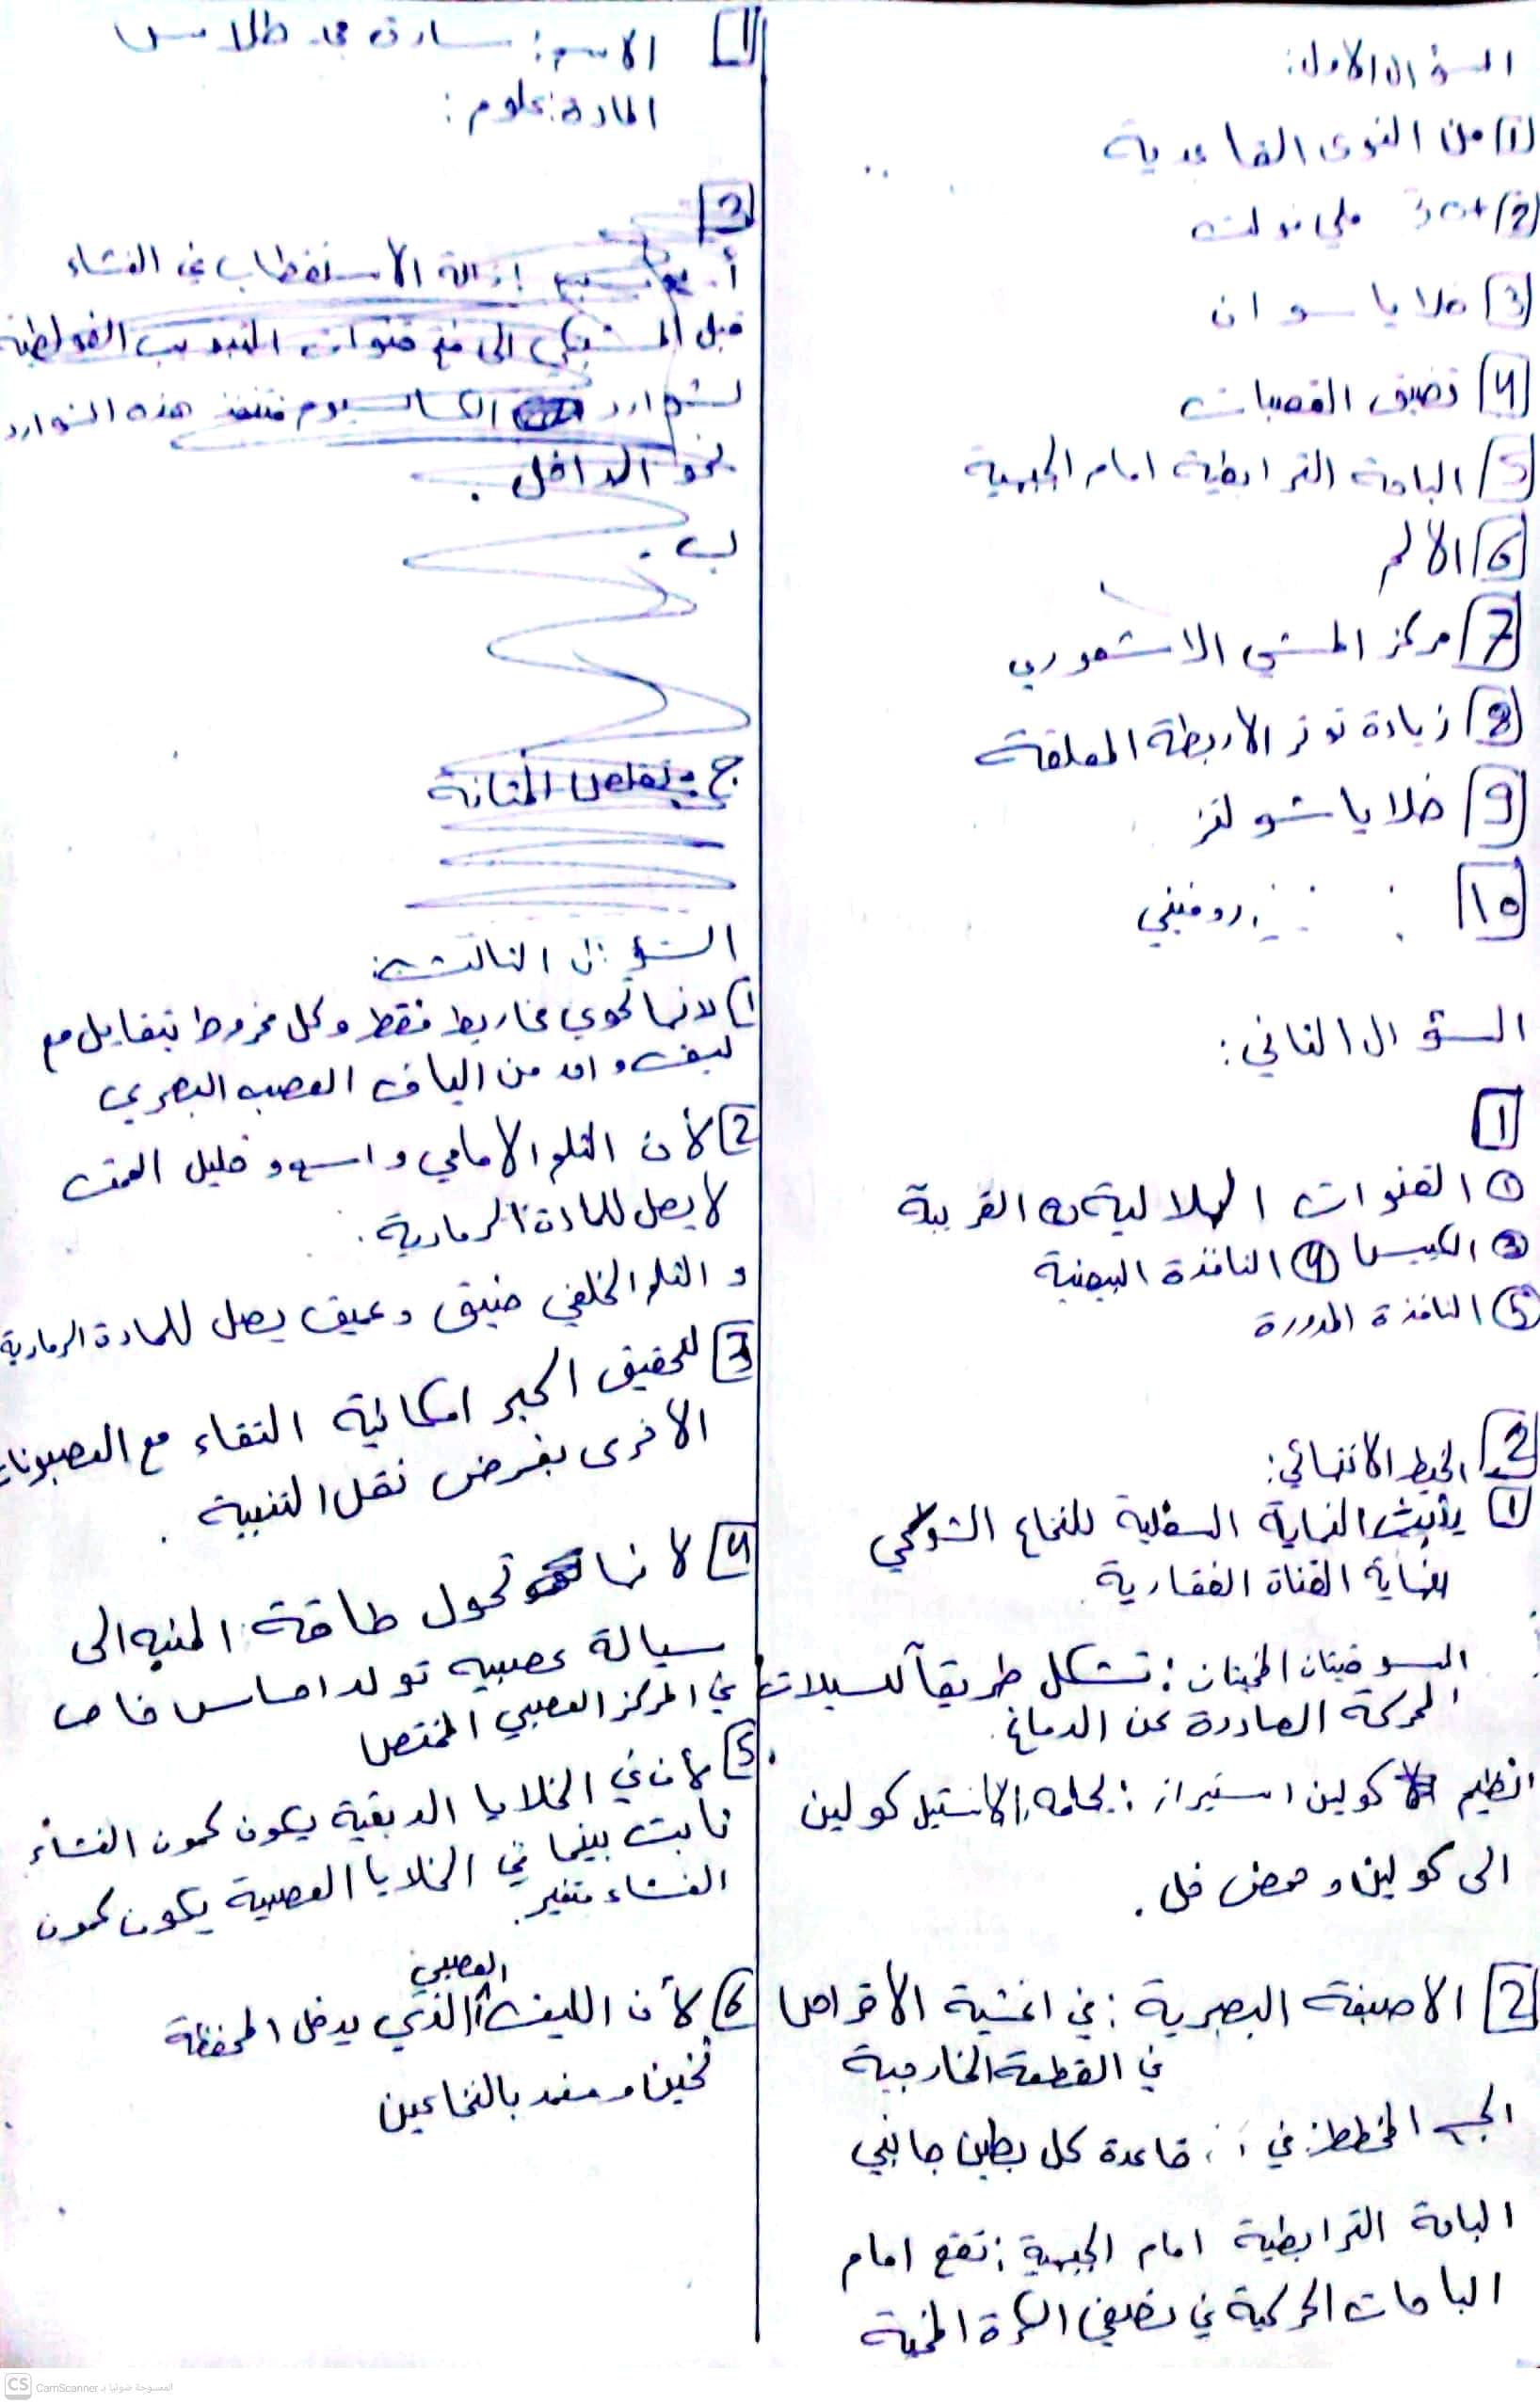 السؤال الاول:
1 من النوى القاعدية
2 +30 ملي فولت
3 خلايا سوان
4 تضيق القصبات
5 الباحة الترابطية امام الجبهية
6 الألم
7 مركز المشي اللاشعوري
8 زيادة توتر الاربطة المعلقة
9 خلايا شولتز
10 روفيني
السؤال الثاني:
1
① القنوات الهلالية ② القريبة
③ الكييس ④ النافذة البيضية
⑤ النافذة المدورة
2 الخيط الانتهائي:
1 يثبت النهاية السفلية للنخاع الشوكي
بنهاية القناة الفقارية.
السويقتان المخيتان: تشكل طريقاً للسيلات
المحركة الصادرة عن الدماغ.
انظيم كولين استيراز: يحلمه الاستيل كولين
الى كولين وحمض خل.
2 الاصبغة البصرية: في اغشية الأقراص
في القطعة الخارجية
الجسم المخطط: في قاعدة كل بطين جانبي
الباحة الترابطية امام الجبهية: تقع امام
الباحات الحركية في نصفي الكرة المخية
1 الاسم: سارة محمد طلاس
المادة: علوم:
3
أ. إزالة الاستقطاب في الغشاء
قبل المشبكي الى فتح قنوات التبويب الفولطية
لشوارد الكالسيوم فتنفذ هذه الشوارد
نحو الداخل.
ب.
ج. تقلص المثانة
السؤال الثالث:
1 لانها تحوي مخاريط فقط وكل مخروط يتقابل مع
ليف واحد من الياف العصب البصري
2 لأن الثلم الأمامي واسع و قليل العمق
لا يصل للمادة الرمادية.
و الثلم الخلفي ضيق وعميق يصل للمادة الرمادية
3 لتحقيق اكبر امكانية التقاء مع العصبونات
الأخرى بغرض نقل التنبيه.
4 لانها تحول طاقة المنبه الى
سيالة عصبيه تولد احساس خاص
في المركز العصبي المختص
5 لأن في الخلايا الدبقية يكون كمون الغشاء
ثابت بينما في الخلايا العصبية يكون كمون
الغشاء متغير.
6 لأن الليف العصبي الذي يدخل المحفظة
ثخين ومغمد بالنخاعين
CS CamScanner الممسوحة ضوئيا بـ